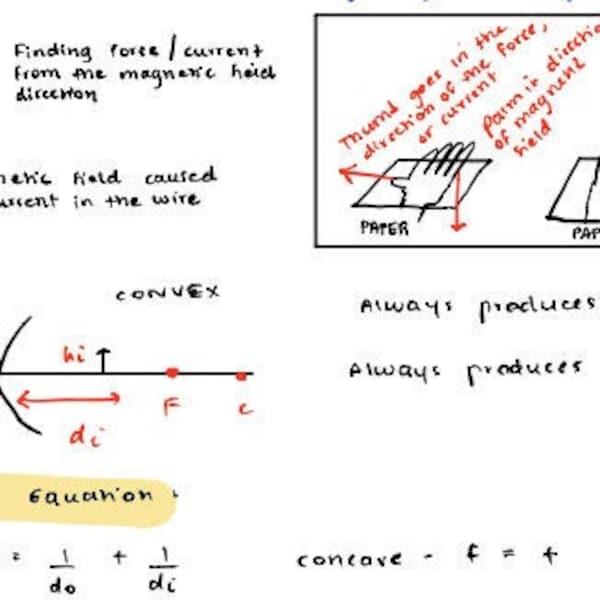 Finding force / current
from the magnetic field
direction
Thumb goes in the
direction of the force,
or current
Palm in directio
of magnetic
field
PAPER
PAP
netic field caused
urrent in the wire
CONVEX
hi
F
C
di
Always produces
Always produces
Equation
= 1/do + 1/di
concave - f = +